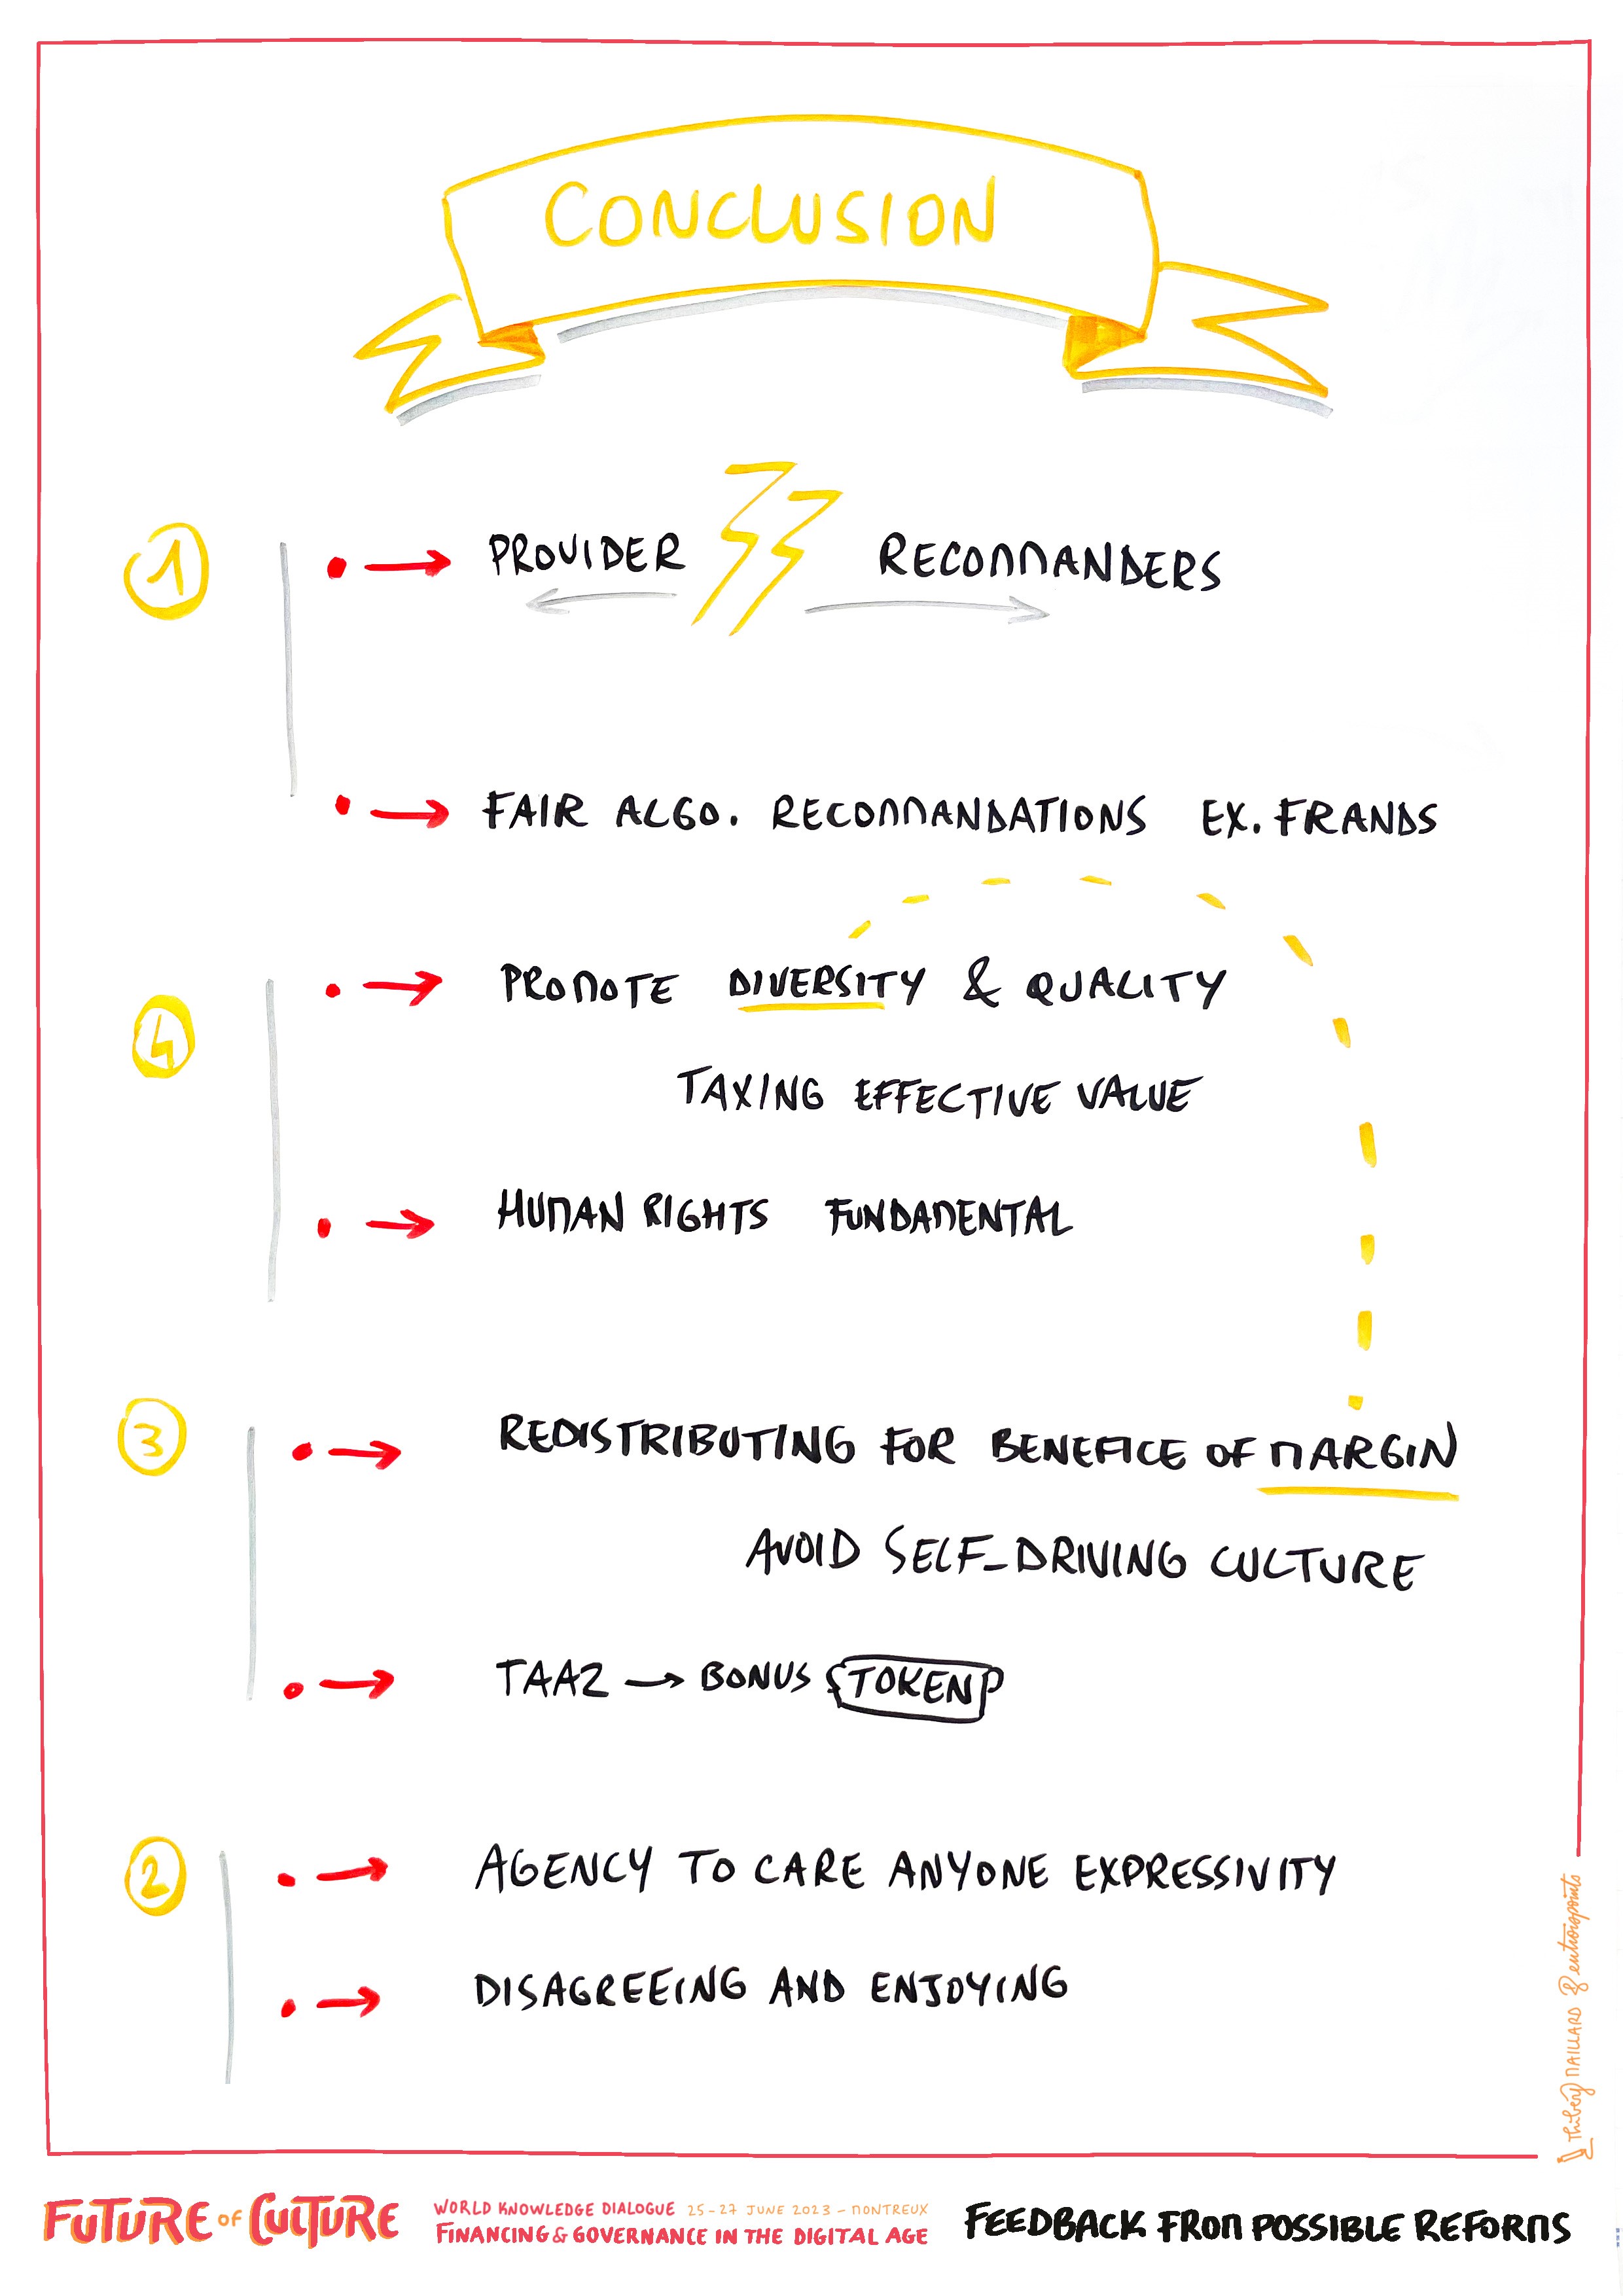 CONCLUSION
1
PROVIDER RECOMMANDERS
FAIR ALGO. RECOMMANDATIONS EX. FRANDS
4
PROMOTE DIVERSITY & QUALITY
TAXING EFFECTIVE VALUE
HUMAN RIGHTS FUNDAMENTAL
3
REDISTRIBUTING FOR BENEFICE OF MARGIN
AVOID SELF-DRIVING CULTURE
TAA2 → BONUS TOKEN
2
AGENCY TO CARE ANYONE EXPRESSIVITY
DISAGREEING AND ENJOYING
Thibéry MAILLARD & entroropoints
FUTURE OF CULTURE
WORLD KNOWLEDGE DIALOGUE 25-27 JUNE 2023 - MONTREUX
FINANCING & GOVERNANCE IN THE DIGITAL AGE
FEEDBACK FROM POSSIBLE REFORMS